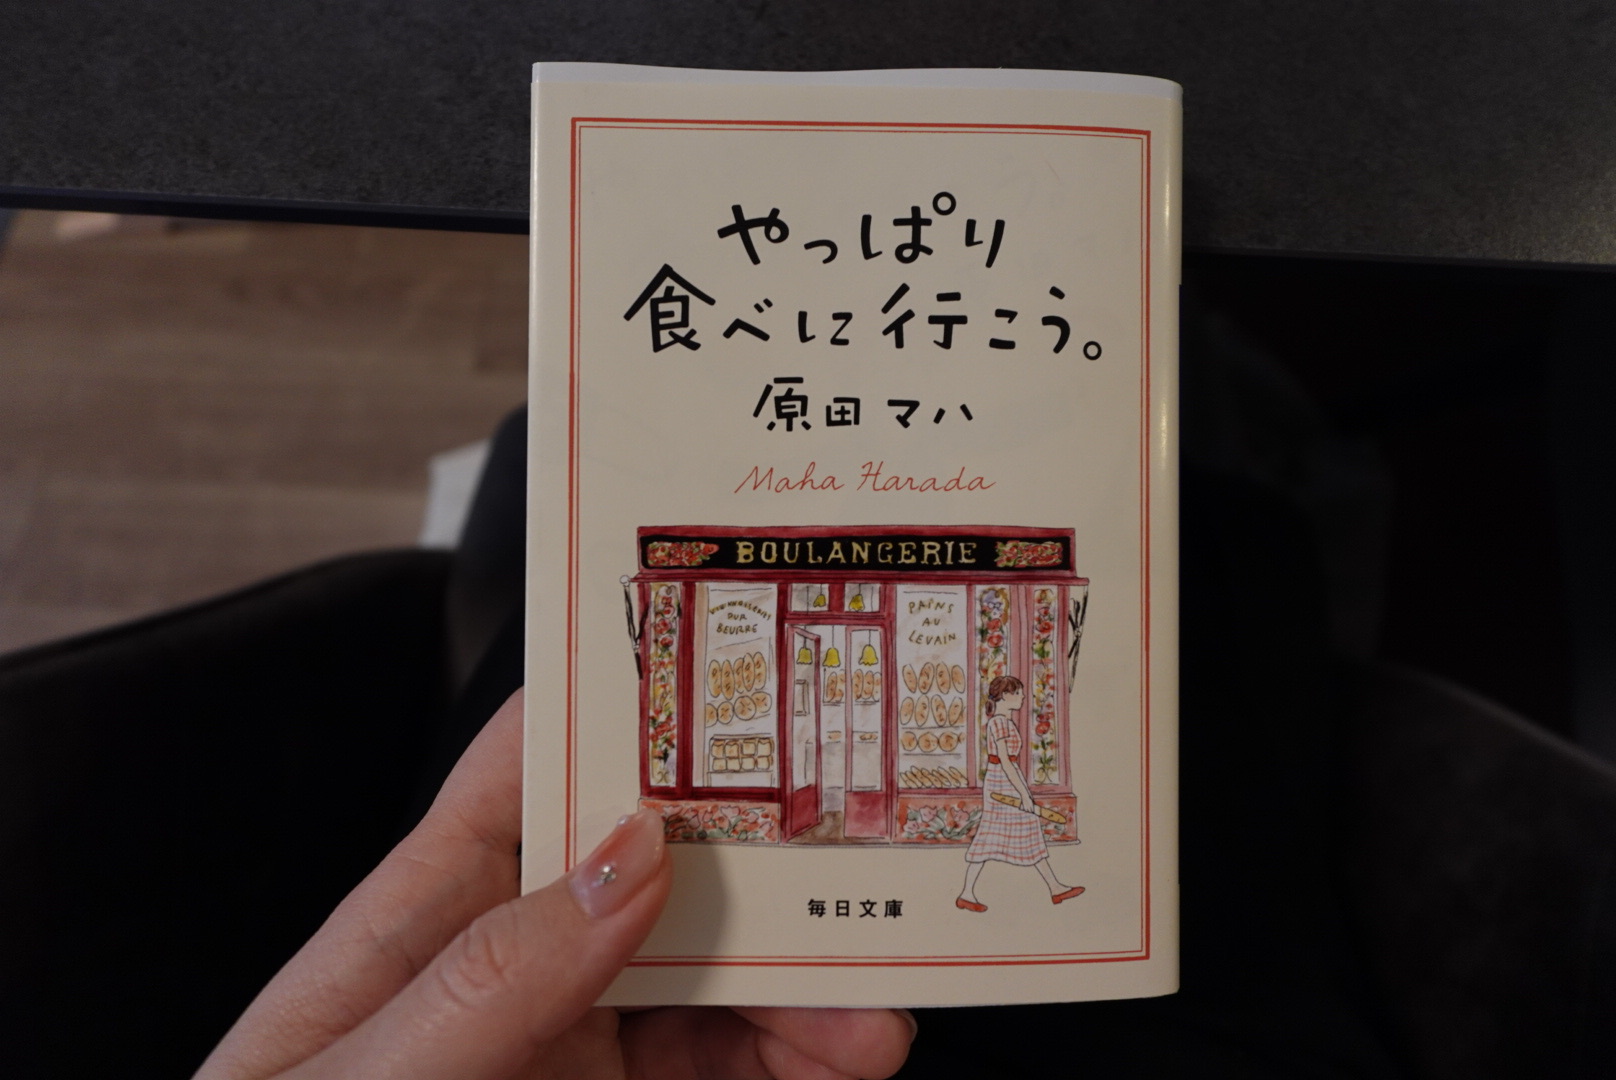 やっぱり
食べに行こう。
原田マハ
Maha Harada
BOULANGERIE
PUR
BEURRE
PAINS
AU
LEVAIN
毎日文庫